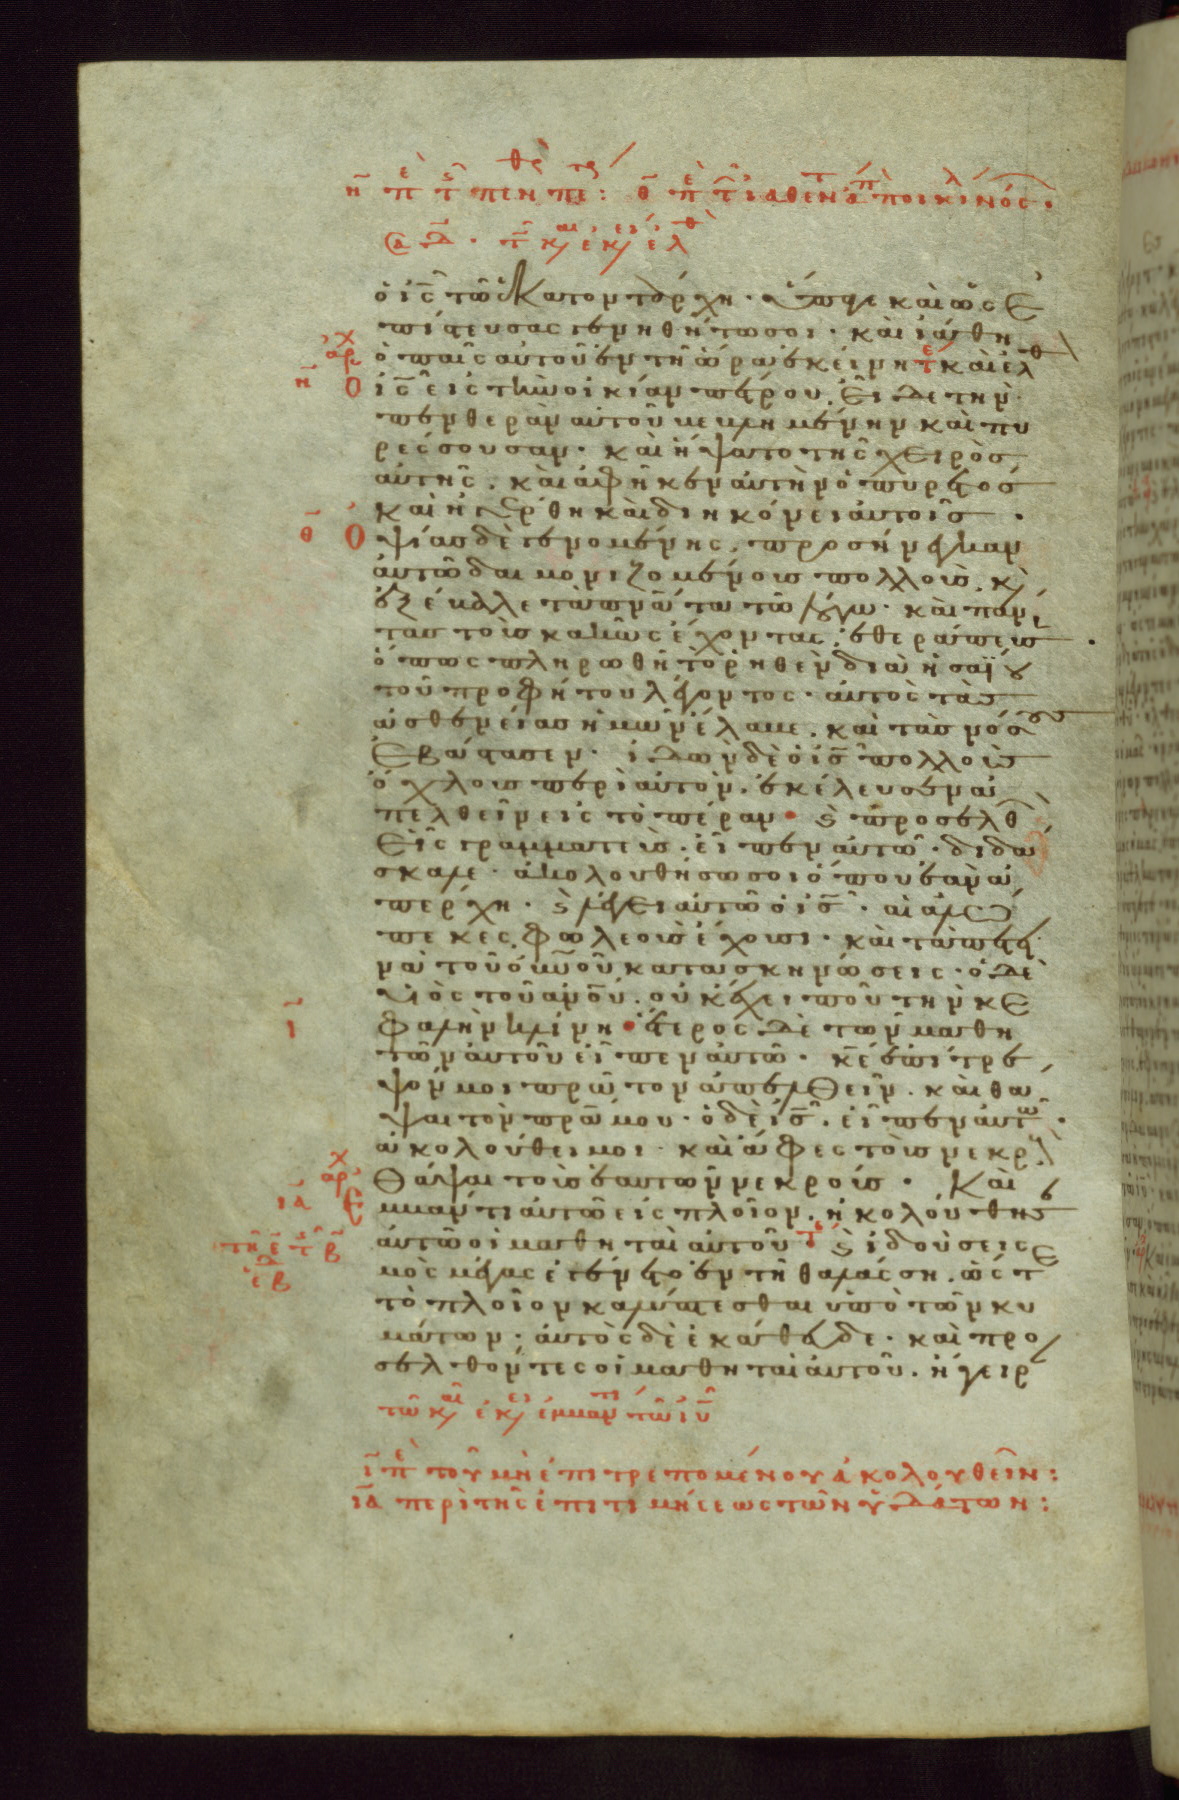 ὁ ις τῶ ἑκατοντάρχη· ὕπαγε καὶ ὡς ἐ
πίστευσας γενηθήτω σοι· καὶ ἰάθη
ὁ παῖς αὐτοῦ ἐν τῆ ὥρα ἐκείνη καὶ ἐλθ
Ὁ ις εἰς τὴν οἰκίαν πέτρου. εἶδε τὴν
πενθερὰν αὐτοῦ βεβλημένην καὶ πυ
ρέσσουσαν· καὶ ἥψατο τῆς χειρὸς
αὐτῆς. καὶ ἀφῆκεν αὐτὴν ὁ πυρετός
καὶ ἠγέρθη καὶ διηκόνει αὐτοῖς·
Ὀψίας δὲ γενομένης. προσήνεγκαν
αὐτῶ δαιμονιζομένους πολλούς. κ
ἐξέβαλε τὰ πνατα τῶ λόγω· καὶ πάν
τας τοὺς κακῶς ἔχοντας. ἐθεράπευσ·
ὅπως πληρωθῆ τὸ ῥηθὲν διὰ ἠσαΐου
τοῦ προφήτου λέγοντος· αὐτὸς τὰς
ἀσθενείας ἡμῶν ἔλαβε. καὶ τὰς νόσους
ἐβάστασεν· ἰδὼν δὲ ὁ ις πολλοὺς
ὄχλους περὶ αὐτόν. ἐκέλευσεν ἀ
πελθεῖν εἰς τὸ πέραν· κ προσελθ
εἷς γραμματεὺς. εἶπεν αὐτῶ· διδά
σκαλε· ἀκολουθήσω σοι ὅπου ἐὰν ἀ
πέρχη· κ λέγει αὐτῶ ὁ ις· αἱ ἀλώ
πεκες φωλεοὺς ἔχουσι· καὶ τὰ πετει
νὰ τοῦ οὐνοῦ κατασκηνώσεις· ὁ δὲ
υἱὸς τοῦ ανου. οὐκ ἔχει ποῦ τὴν κε
φαλὴν κλίνη· ἕτερος δὲ τῶν μαθη
τῶν αὐτοῦ εἶπεν αὐτῶ· κε ἐπίτρε
ψόν μοι πρῶτον ἀπελθεῖν. καὶ θά
ψαι τὸν πρα μου· ὁ δὲ ις. εἶπεν αὐτῶ·
ἀκολούθει μοι καὶ ἄφες τοὺς νεκρ
θάψαι τοὺς ἑαυτῶν νεκρούς· Καὶ
ἐμβάντι αὐτῶ εἰς πλοῖον. ἠκολούθησ
αὐτῶ οἱ μαθηταὶ αὐτοῦ κ ἰδοὺ σεισ
μὸς μέγας ἐγένετο ἐν τῆ θαλάσση. ὥστ
τὸ πλοῖον καλύπτεσθαι ὑπὸ τῶν κυ
μάτων· αὐτὸς δὲ ἐκάθευδε· καὶ προ
σελθόντες οἱ μαθηταὶ αὐτοῦ. ἤγειρ
ι πε τοῦ μὴ ἐπιτρεπομένου ἀκολουθεῖν:
ια περὶ τῆς ἐπιτιμήσεως τῶν ὑδάτων: